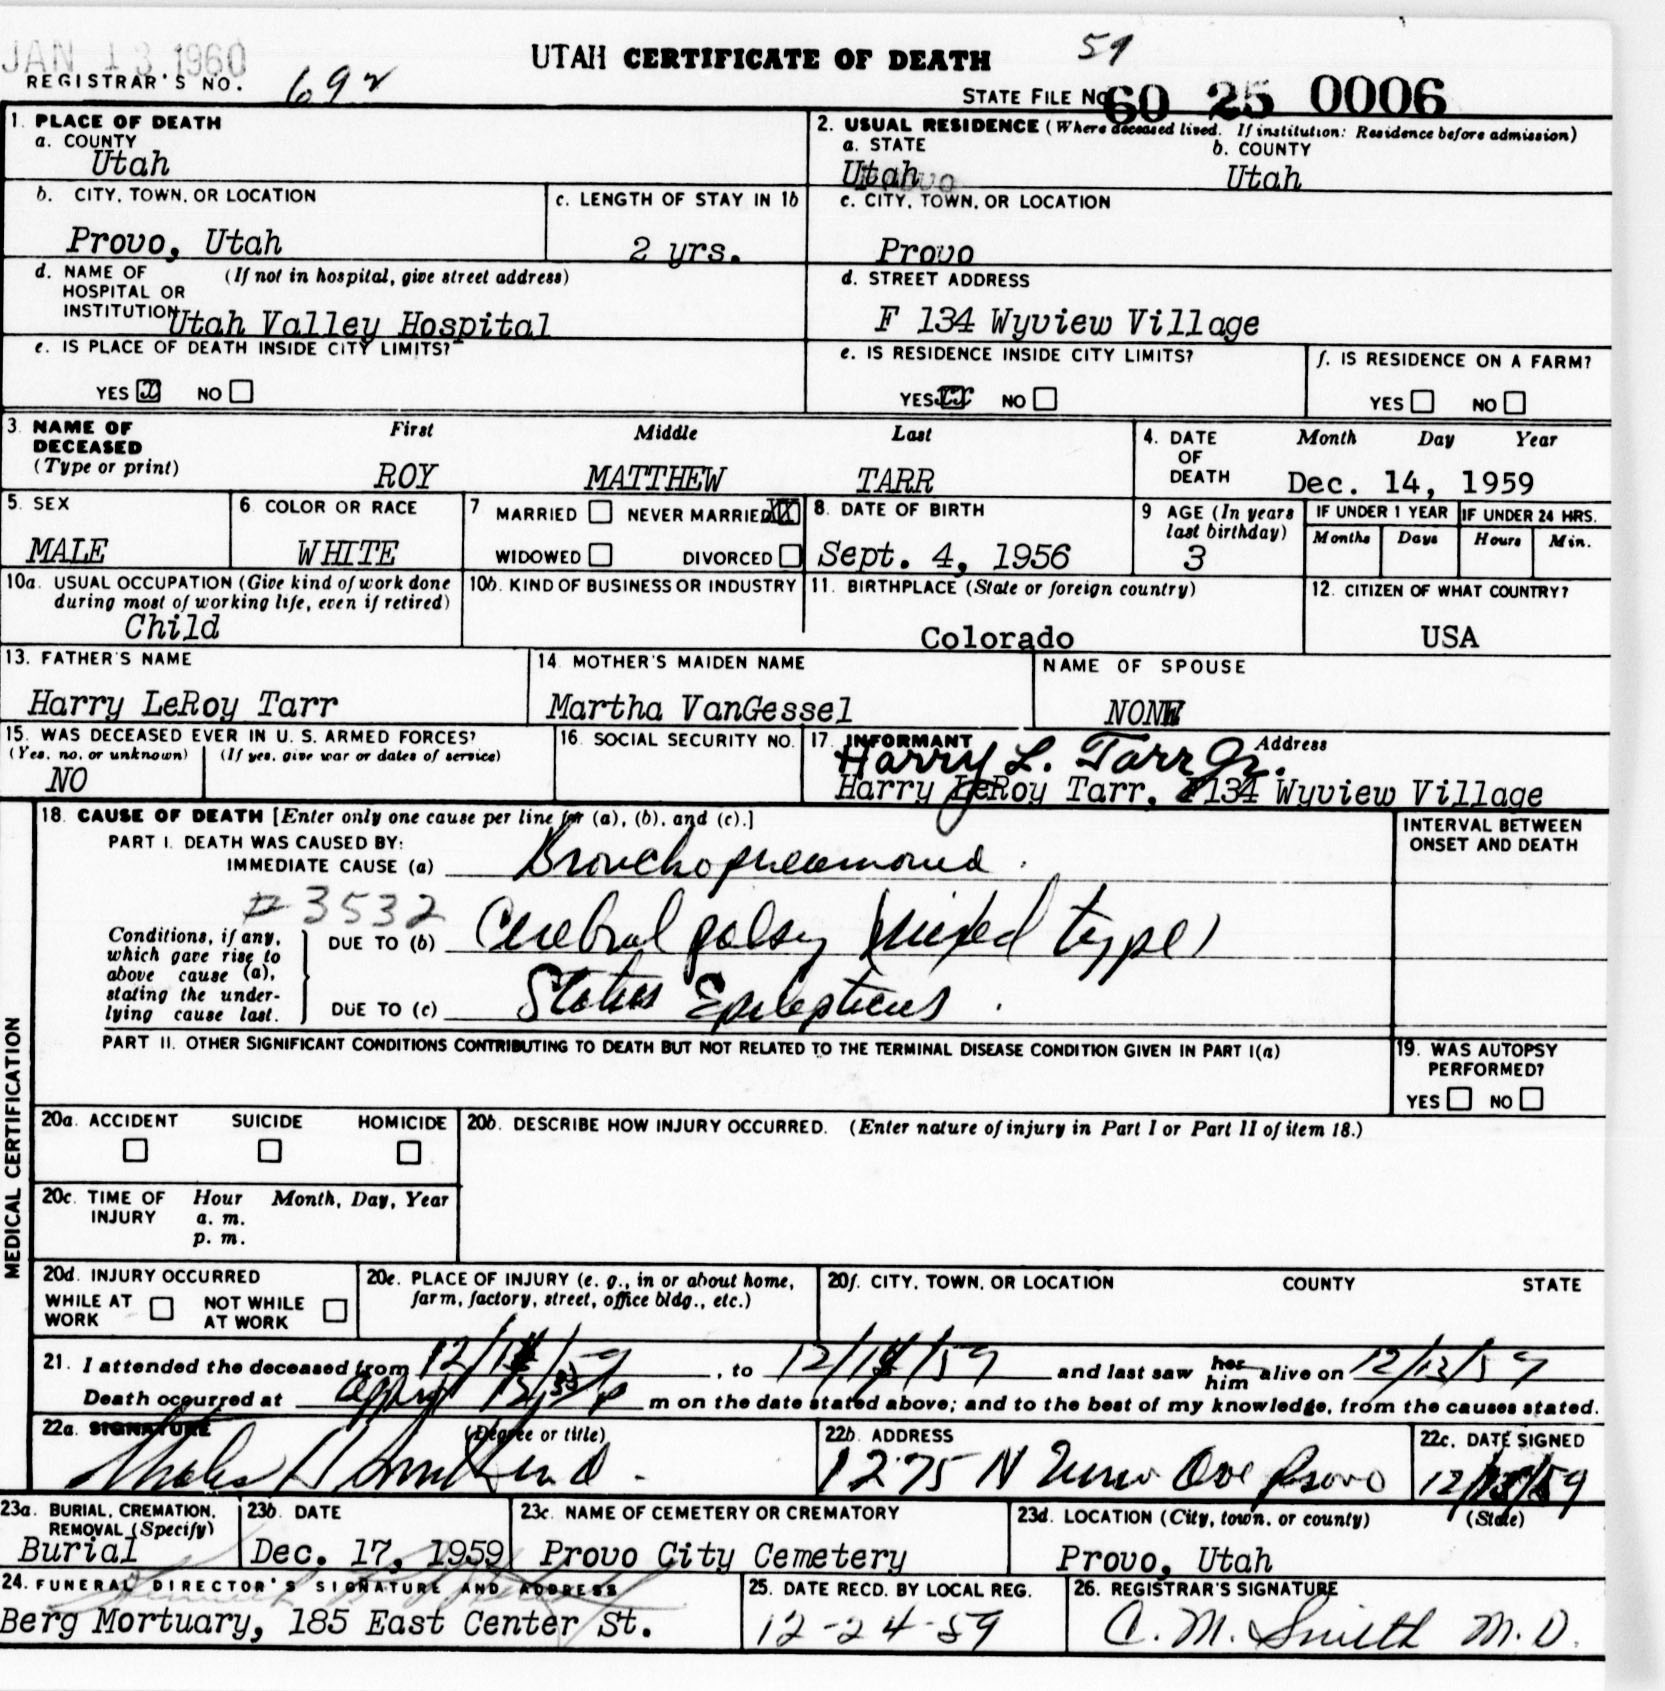 JAN 13 1960
UTAH CERTIFICATE OF DEATH 59
REGISTRAR'S NO. 692
STATE FILE No. 60 25 0006
1. PLACE OF DEATH
a. COUNTY
Utah
2. USUAL RESIDENCE (Where deceased lived. If institution: Residence before admission)
a. STATE b. COUNTY
Utah Utah
b. CITY, TOWN, OR LOCATION
Provo, Utah
c. LENGTH OF STAY IN 1b
2 yrs.
c. CITY, TOWN, OR LOCATION
Provo
d. NAME OF (If not in hospital, give street address)
HOSPITAL OR
INSTITUTION Utah Valley Hospital
d. STREET ADDRESS
F 134 Wyview Village
e. IS PLACE OF DEATH INSIDE CITY LIMITS?
YES X NO
e. IS RESIDENCE INSIDE CITY LIMITS?
YES XX NO
f. IS RESIDENCE ON A FARM?
YES NO
3. NAME OF DECEASED (Type or print)
First Middle Last
ROY MATTHEW TARR
4. DATE OF DEATH
Month Day Year
Dec. 14, 1959
5. SEX
MALE
6. COLOR OR RACE
WHITE
7 MARRIED NEVER MARRIED XX
WIDOWED DIVORCED
8. DATE OF BIRTH
Sept. 4, 1956
9 AGE (In years last birthday)
3
IF UNDER 1 YEAR IF UNDER 24 HRS.
Months Days Hours Min.
10a. USUAL OCCUPATION (Give kind of work done
during most of working life, even if retired)
Child
10b. KIND OF BUSINESS OR INDUSTRY
11. BIRTHPLACE (State or foreign country)
Colorado
12. CITIZEN OF WHAT COUNTRY?
USA
13. FATHER'S NAME
Harry LeRoy Tarr
14. MOTHER'S MAIDEN NAME
Martha VanGessel
NAME OF SPOUSE
NONE
15. WAS DECEASED EVER IN U. S. ARMED FORCES?
(Yes, no, or unknown) (If yes, give war or dates of service)
NO
16. SOCIAL SECURITY NO.
17. INFORMANT Address
Harry L. Tarr Jr.
Harry LeRoy Tarr, F134 Wyview Village
18. CAUSE OF DEATH [Enter only one cause per line for (a), (b), and (c).]
INTERVAL BETWEEN
ONSET AND DEATH
PART I. DEATH WAS CAUSED BY:
IMMEDIATE CAUSE (a) Bronchopneumonia.
#3532
Conditions, if any,
which gave rise to
above cause (a),
stating the under-
lying cause last.
DUE TO (b) Cerebral palsy (mixed type)
DUE TO (c) Status Epilepticus.
PART II. OTHER SIGNIFICANT CONDITIONS CONTRIBUTING TO DEATH BUT NOT RELATED TO THE TERMINAL DISEASE CONDITION GIVEN IN PART I(a)
19. WAS AUTOPSY
PERFORMED?
YES NO
MEDICAL CERTIFICATION
20a. ACCIDENT SUICIDE HOMICIDE
20b. DESCRIBE HOW INJURY OCCURRED. (Enter nature of injury in Part I or Part II of item 18.)
20c. TIME OF INJURY
Hour Month, Day, Year
a. m.
p. m.
20d. INJURY OCCURRED
WHILE AT WORK NOT WHILE AT WORK
20e. PLACE OF INJURY (e. g., in or about home,
farm, factory, street, office bldg., etc.)
20f. CITY, TOWN, OR LOCATION COUNTY STATE
21. I attended the deceased from 12/ /59, to 12/14/59 and last saw her him alive on 12/13/59
Death occurred at m on the date stated above; and to the best of my knowledge, from the causes stated.
22a. SIGNATURE (Degree or title)
22b. ADDRESS
1275 N Provo
22c. DATE SIGNED
12/ /59
23a. BURIAL, CREMATION,
REMOVAL (Specify)
Burial
23b. DATE
Dec. 17, 1959
23c. NAME OF CEMETERY OR CREMATORY
Provo City Cemetery
23d. LOCATION (City, town, or county) (State)
Provo, Utah
24. FUNERAL DIRECTOR'S SIGNATURE AND ADDRESS
Berg Mortuary, 185 East Center St.
25. DATE RECD. BY LOCAL REG.
12-24-59
26. REGISTRAR'S SIGNATURE
C. M. Smith M.D.